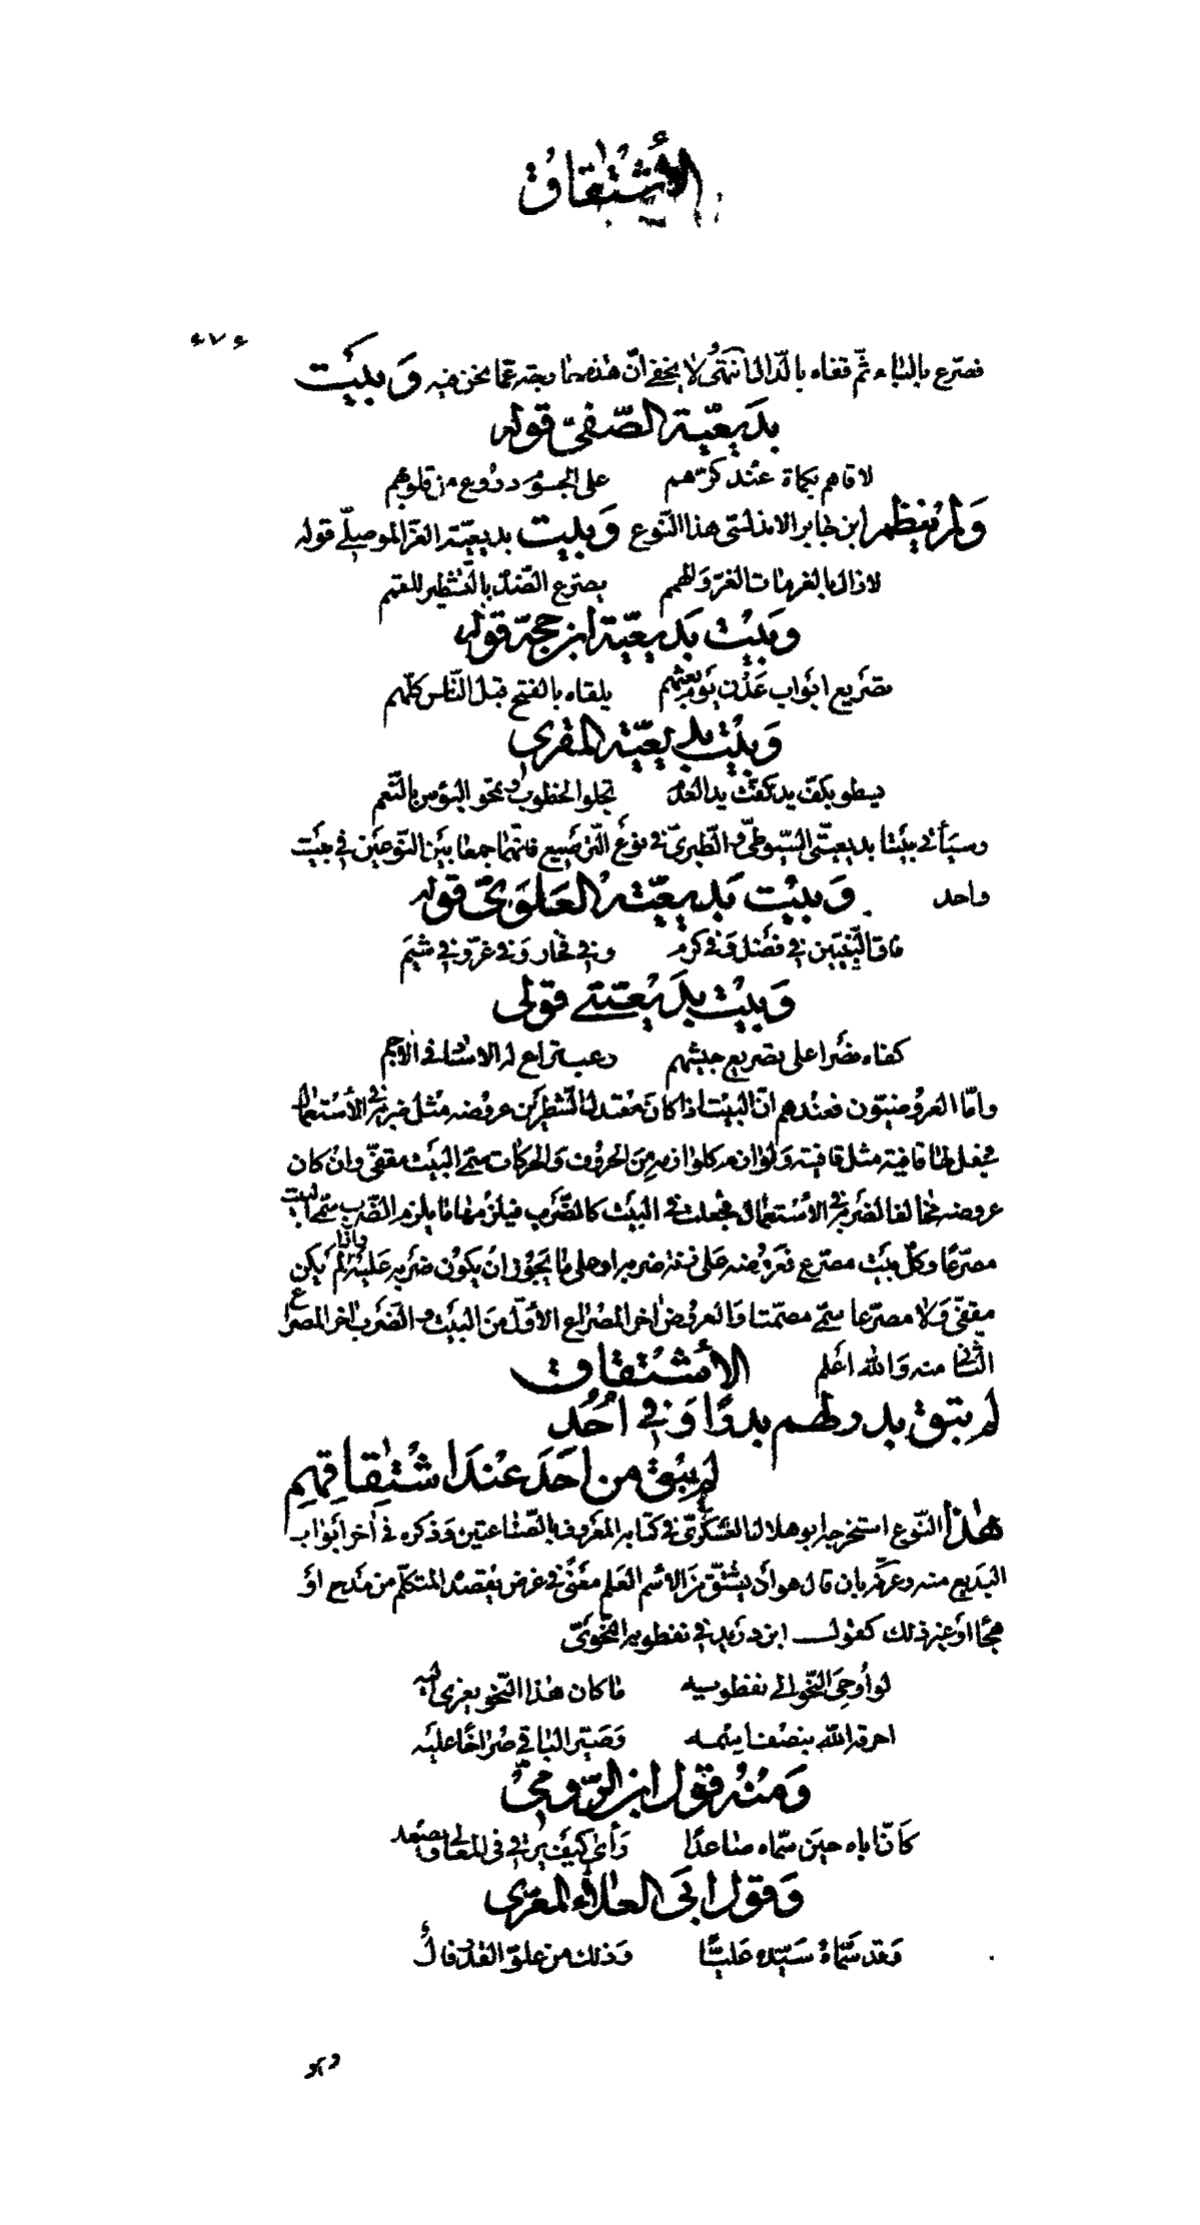 الأشتقاق
٤٧٤
فصرع بالتاء ثم قفاه بالدال انتهى ولا يخفى ان هذه مما بجهة عما نحن فيه وَبيَت
بدَيعيّة الصّفىّ قوله
لاقاهم بكماة عند كرّهم على الجسوم دروع من قلوبهم
وَلم ينظم ابن جابر الاندلسى هذا النّوع وَبيت بديعيّة العز الموصلى قوله
لا زال بالعزمات الغرّ وَلهم بصرّع الضّدّ بالتشطير للقمم
وبَيْت بَديعيّة ابن حجّة قوله
تصَريع ابوَاب عَدْن يَوْم بعثهم يلقاه بالفتح قبل النّاس كلّهم
وَبيْت بديعيّة المقرى
يسطو بكفّ يد كفّت يد العدَم تجلو الخطوب وتمحو البؤس بالنّعم
وسيَأتى بيَتا بديعيّتى السّيوطىّ والطّبرىّ فى نوع التّرصيع فانّهما جمعا بيَن النّوعيَن فى بيَت
واحد وَبيْت بَديعيّة العَلوَىّ قوله
فاق النّبيّين فى فضل وَفى كرم وفى فخار وَفى عزّ وفى شيَم
وَبيْت بدَيعيّتى قولى
كفاه نصَرا على تصريع جيشهم رعب تراع له الاسْاد فى الأجم
وامّا العرُوضيّون فعندهم انّ البيْت اذا كانَ معْتدل الشّطريَن عروضه مثل ضربه فى الأستعمال
فجعل لها قافية مثل قافيته وَلوازمه كلوازمه مِنَ الحروُف وَالحركات سمّى البيَت مقفّى وانْ كان
عروضه مخالفا لضَربه فى الأستعمال فجعلت فى البيَت كالضّرب فيلزمها ما يلزم الضّرب سمّى البيت
مصرّعا وكلّ بيَت مصَرع فعَروُضه عَلى زنة ضربه او على ما يَجوُز ان يكوُن ضَربه عَليْه واذا لم يَكن
مقفّى وَلا مصرّعا سمّى مصَمّتا وَالعروُض اخر المصْراع الأوّل من البيَت والضّرَب اخر المصراع
الثّانى منه وَالله اعَلم الأشتقاق
لم يبَق بدر لهم بدرًا وَفى اُحُد
لم يبْق من احَد عنْدَ اشْتِقاقِهِمِ
هٰذا النّوع استخرجه ابو هلال العَسْكرىّ فى كتابه المعَروف بالصّناعتين وَذكره فى اخر ابوَاب
البدَيع منه وعَرّفه بان قال هو انْ يشْتقّ من الاسْم العَلم معَنًى فى غرض يقصده المتكلّم من مدَح اوَ
هجَا اوَ غير ذلك كقول ابن درَيد فى نفطويه النّحوَىّ
لو اُوحِىَ النّحو الى نفطويه ما كان هٰذا النّحو يعزى اليه
احرقه الله بنصْف اسْمه وَصَيّر الباقى صُرَاخًا عليَه
وَمنْه قوْل ابن الرّومىّ
كَانّ اباه حيَن سمّاه صاعدًا رَأى كيَف يرَقى فى المعَالى ويصَعد
وَقوْل ابَى العَلاء المعَرّى
وَقد سَمّاهُ سَيّده عَليّا وَذلك من علوّ القدْر فالُ